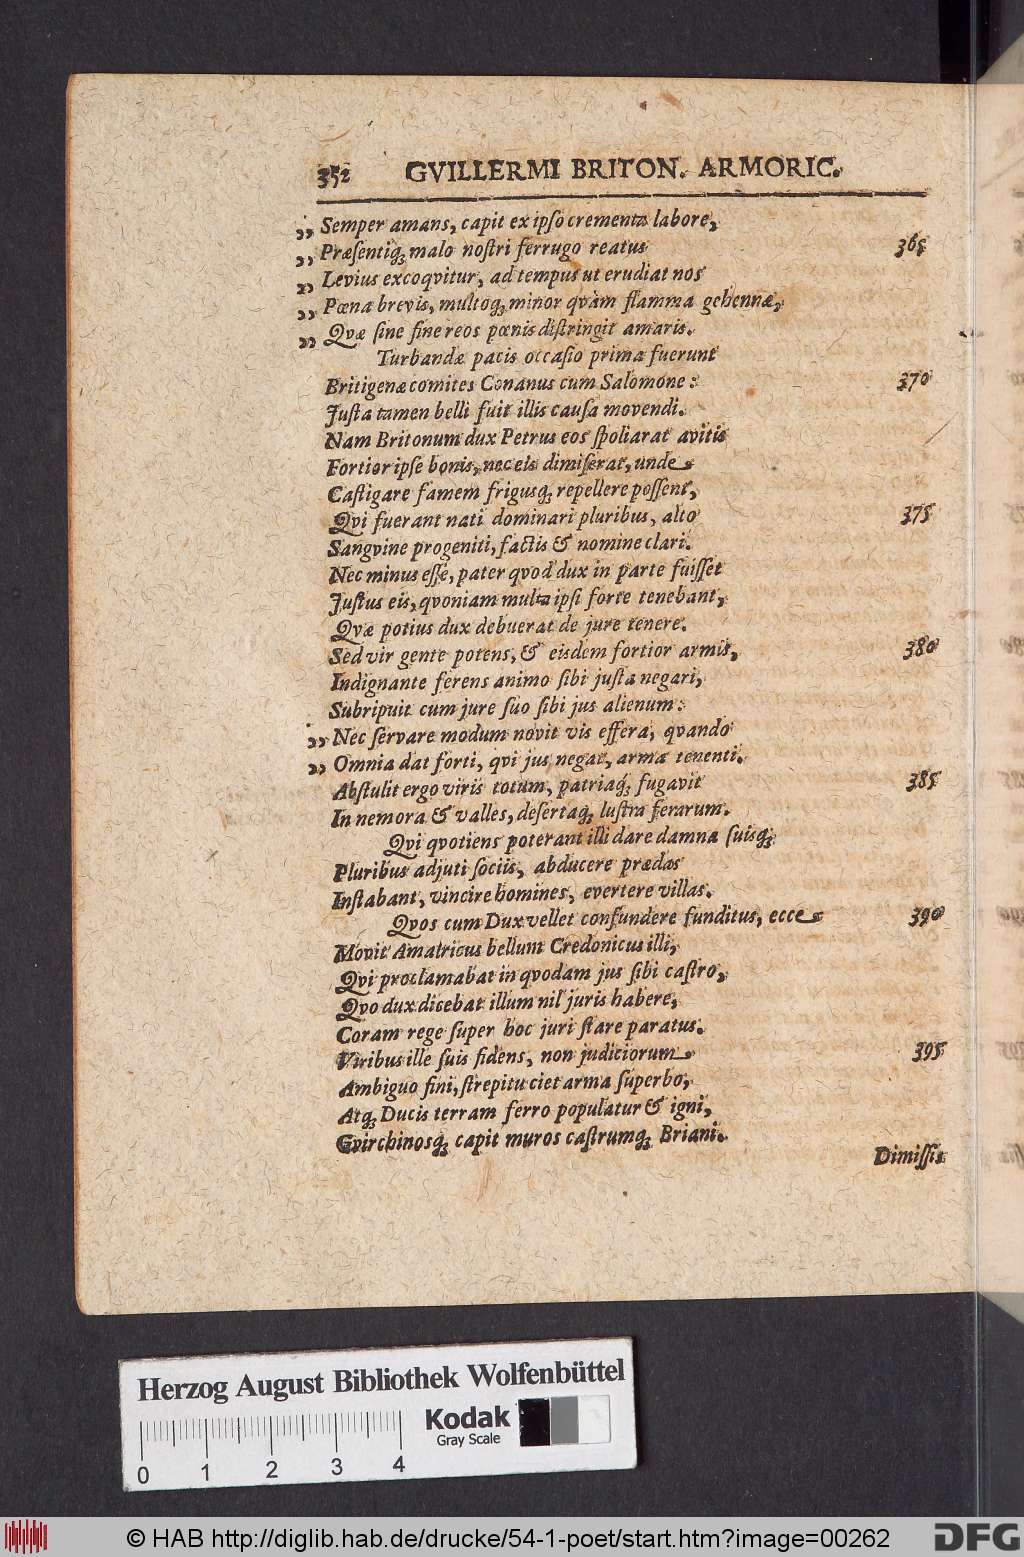 352 GVILLERMI BRITON. ARMORIC.
,, Semper amans, capit ex ipso crementa labore,
,, Præsentiq; malo nostri ferrugo reatus 365
,, Levius excoqvitur, ad tempus ut erudiat nos
,, Pœna brevis, multoq; minor qvàm flamma gehennæ,
,, Qvæ sine fine reos pœnis distringit amaris.
Turbandæ pacis occasio prima fuerunt
Britigenæ comites Conanus cum Salomone: 370
Justa tamen belli fuit illis causa movendi.
Nam Britonum dux Petrus eos spoliarat avitis
Fortior ipse bonis, nec eis dimiserat, unde
Castigare famem frigusq; repellere possent,
Qvi fuerant nati dominari pluribus, alto 375
Sangvine progeniti, factis & nomine clari.
Nec minus esse, pater qvod dux in parte fuisset
Justus eis, qvoniam multa ipsi forte tenebant,
Qvæ potius dux debuerat de jure tenere.
Sed vir gente potens, & eisdem fortior armis, 380
Indignante ferens animo sibi justa negari,
Subripuit cum jure suo sibi jus alienum:
,, Nec servare modum novit vis effera, qvando
,, Omnia dat forti, qvi jus negat, arma tenenti.
Abstulit ergo viris totum, patriaq; fugavit 385
In nemora & valles, desertaq; lustra ferarum.
Qvi qvotiens poterant illi dare damna suisq;
Pluribus adjuti sociis, abducere prædas
Instabant, vincire homines, evertere villas.
Qvos cum Dux vellet confundere funditus, ecce 390
Movit Amalricus bellum Credonicus illi,
Qvi proclamabat in qvodam jus sibi castro,
Qvo dux dicebat illum nil juris habere,
Coram rege super hoc juri stare paratus.
Viribus ille suis fidens, non judiciorum 395
Ambiguo fini, strepitu ciet arma superbo,
Atq; Ducis terram ferro populatur & igni,
Gvirchinosq; capit muros castrumq; Briani.
Dimissis
Herzog August Bibliothek Wolfenbüttel
Kodak
Gray Scale
0 1 2 3 4
© HAB http://diglib.hab.de/drucke/54-1-poet/start.htm?image=00262
DFG